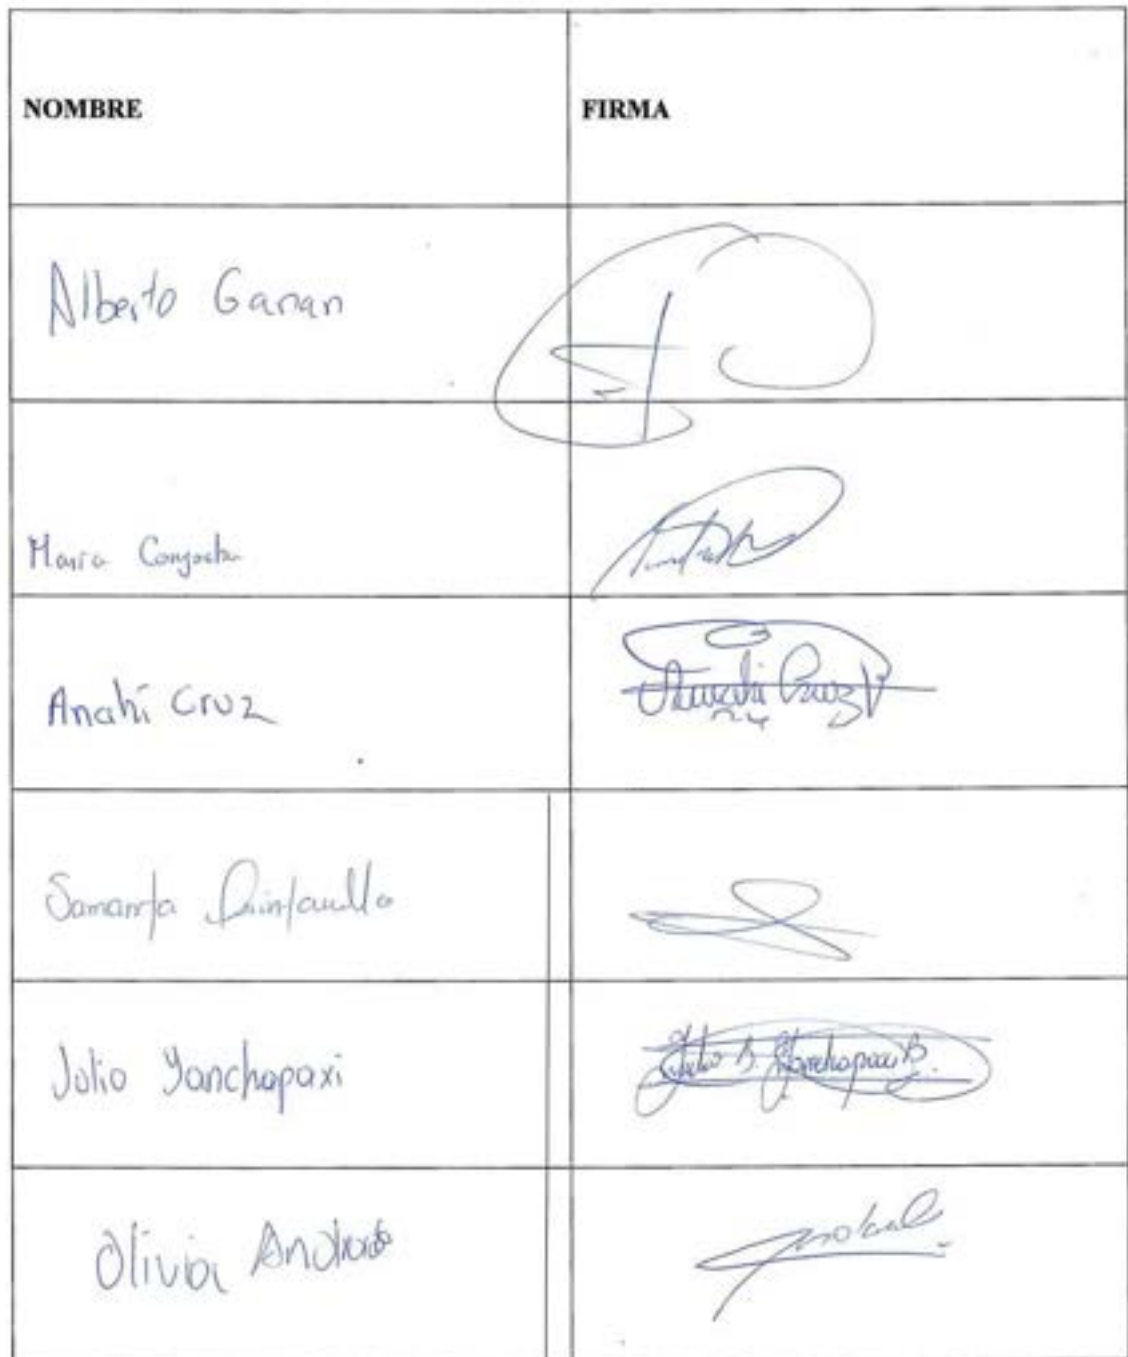 NOMBRE FIRMA
Alberto Ganan
Maria
Anahí Cruz Anahi Cruz
Samanta Quintanilla
Julio Yanchapaxi Julio B. Yanchapaxi B.
Olivia Andrade